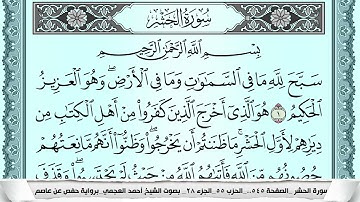 سُورَةُ الْحَشْرِ
بِسْمِ اللَّهِ الرَّحْمَٰنِ الرَّحِيمِ
سَبَّحَ لِلَّهِ مَا فِي السَّمَاوَاتِ وَمَا فِي الْأَرْضِ ۖ وَهُوَ الْعَزِيزُ
الْحَكِيمُ ١ هُوَ الَّذِي أَخْرَجَ الَّذِينَ كَفَرُوا مِنْ أَهْلِ الْكِتَابِ مِن
دِيَارِهِمْ لِأَوَّلِ الْحَشْرِ ۚ مَا ظَنَنتُمْ أَن يَخْرُجُوا ۖ وَظَنُّوا أَنَّهُم مَّانِعَتُهُمْ
حُصُونُهُم مِّنَ اللَّهِ فَأَتَاهُمُ اللَّهُ مِنْ حَيْثُ لَمْ يَحْتَسِبُوا ۖ وَقَذَفَ
سورة الحشر _الصفحة ٥٤٥_ الحزب ٥٥_ الجزء ٢٨_ بصوت الشيخ احمد العجمي_ برواية حفص عن عاصم